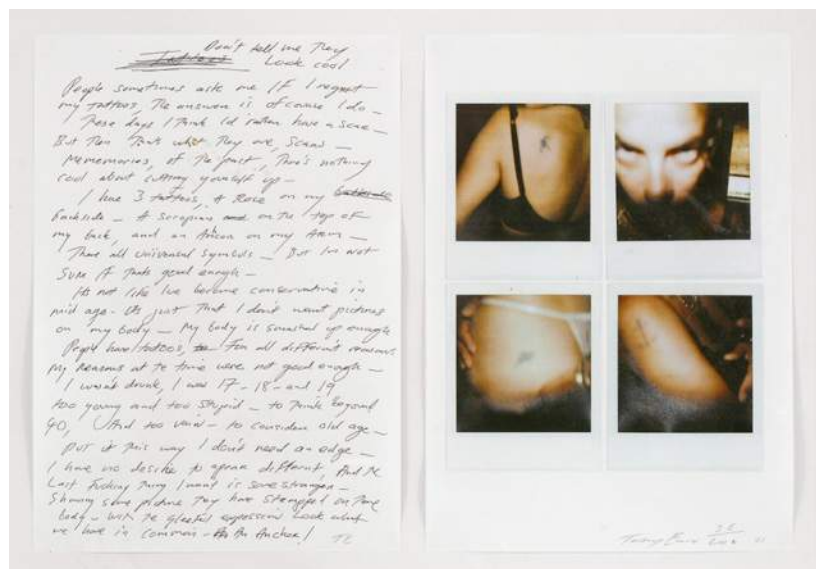 Don't tell me They
Tattoos Look cool
People sometimes ask me IF I regret
my tattoos, The answer is of course I do –
These days I think I'd rather have a scar –
But then thats what They are, Scars –
Mememories, of the past, There's nothing
cool about cutting yourself up –
I have 3 tattoos, A Rose on my
backside – A Scorpian and on the top of
my back, and an Anchor on my Arm –
There all universal symbols – But Im not
Sure IF thats good enough –
Its not like Ive become conservative in
mid age – Its just That I don't want pictures
on my body – My body is scarred up enough
People have tattoos, for all different reasons
My reasons at the time were not good enough –
I wasn't drunk, I was 17 – 18 – and 19
too young and too Stupid – to think beyond
40, And too vain – to consider old age –
Put it this way I don't need an edge –
I have no desire to appear different, And the
Last Fucking thing I want is some stranger –
Showing some picture They have Stamped on There
body – with the gleeful expression Look what
we have in common – An Anchor!
TE
Tracey Emin